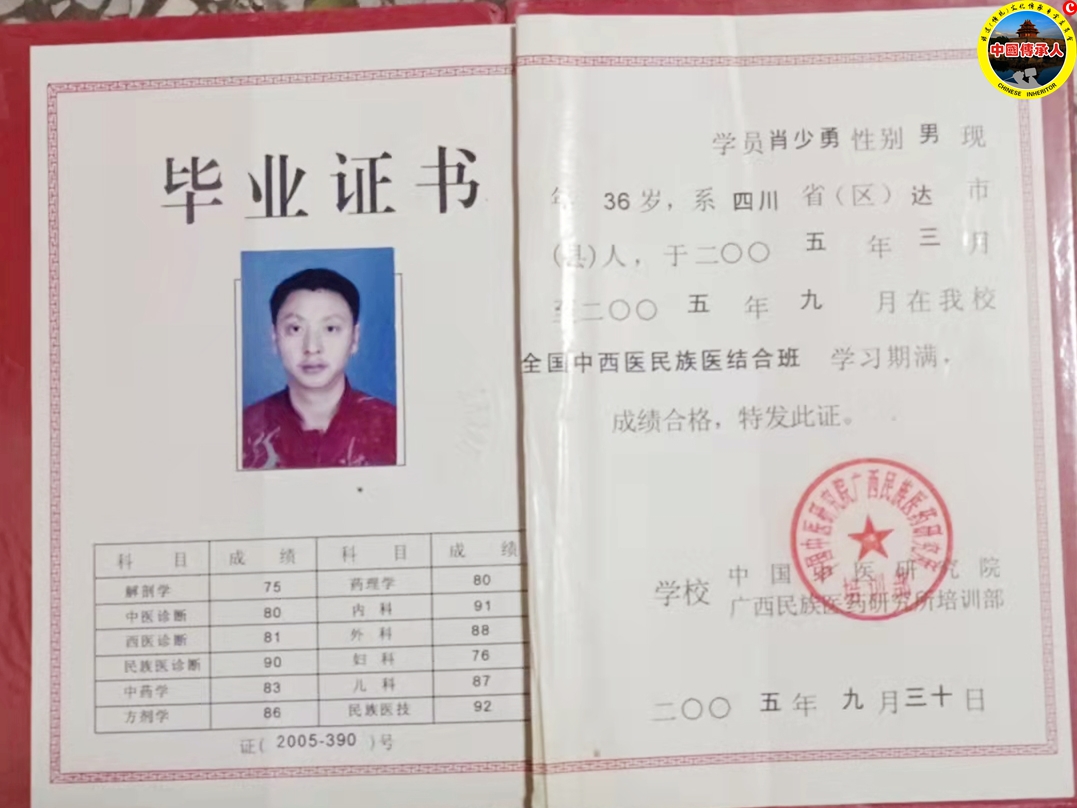 毕业证书
科 目 成 绩 科 目 成 绩
解剖学 75 药理学 80
中医诊断 80 内 科 91
西医诊断 81 外 科 88
民族医诊断 90 妇 科 76
中药学 83 儿 科 87
方剂学 86 民族医技 92
证( 2005-390 )号
学员肖少勇性别 男 现
年 36 岁，系 四川 省（区）达 市
(县)人，于二〇〇 五 年 三 月
至二〇〇 五 年 九 月在我校
全国中西医民族医结合班 学习期满，
成绩合格，特发此证。
学校 中国中医研究院
广西民族医药研究所培训部
培训部
二〇〇 五 年 九 月三十日
中國傳承人
CHINESE INHERITOR
C